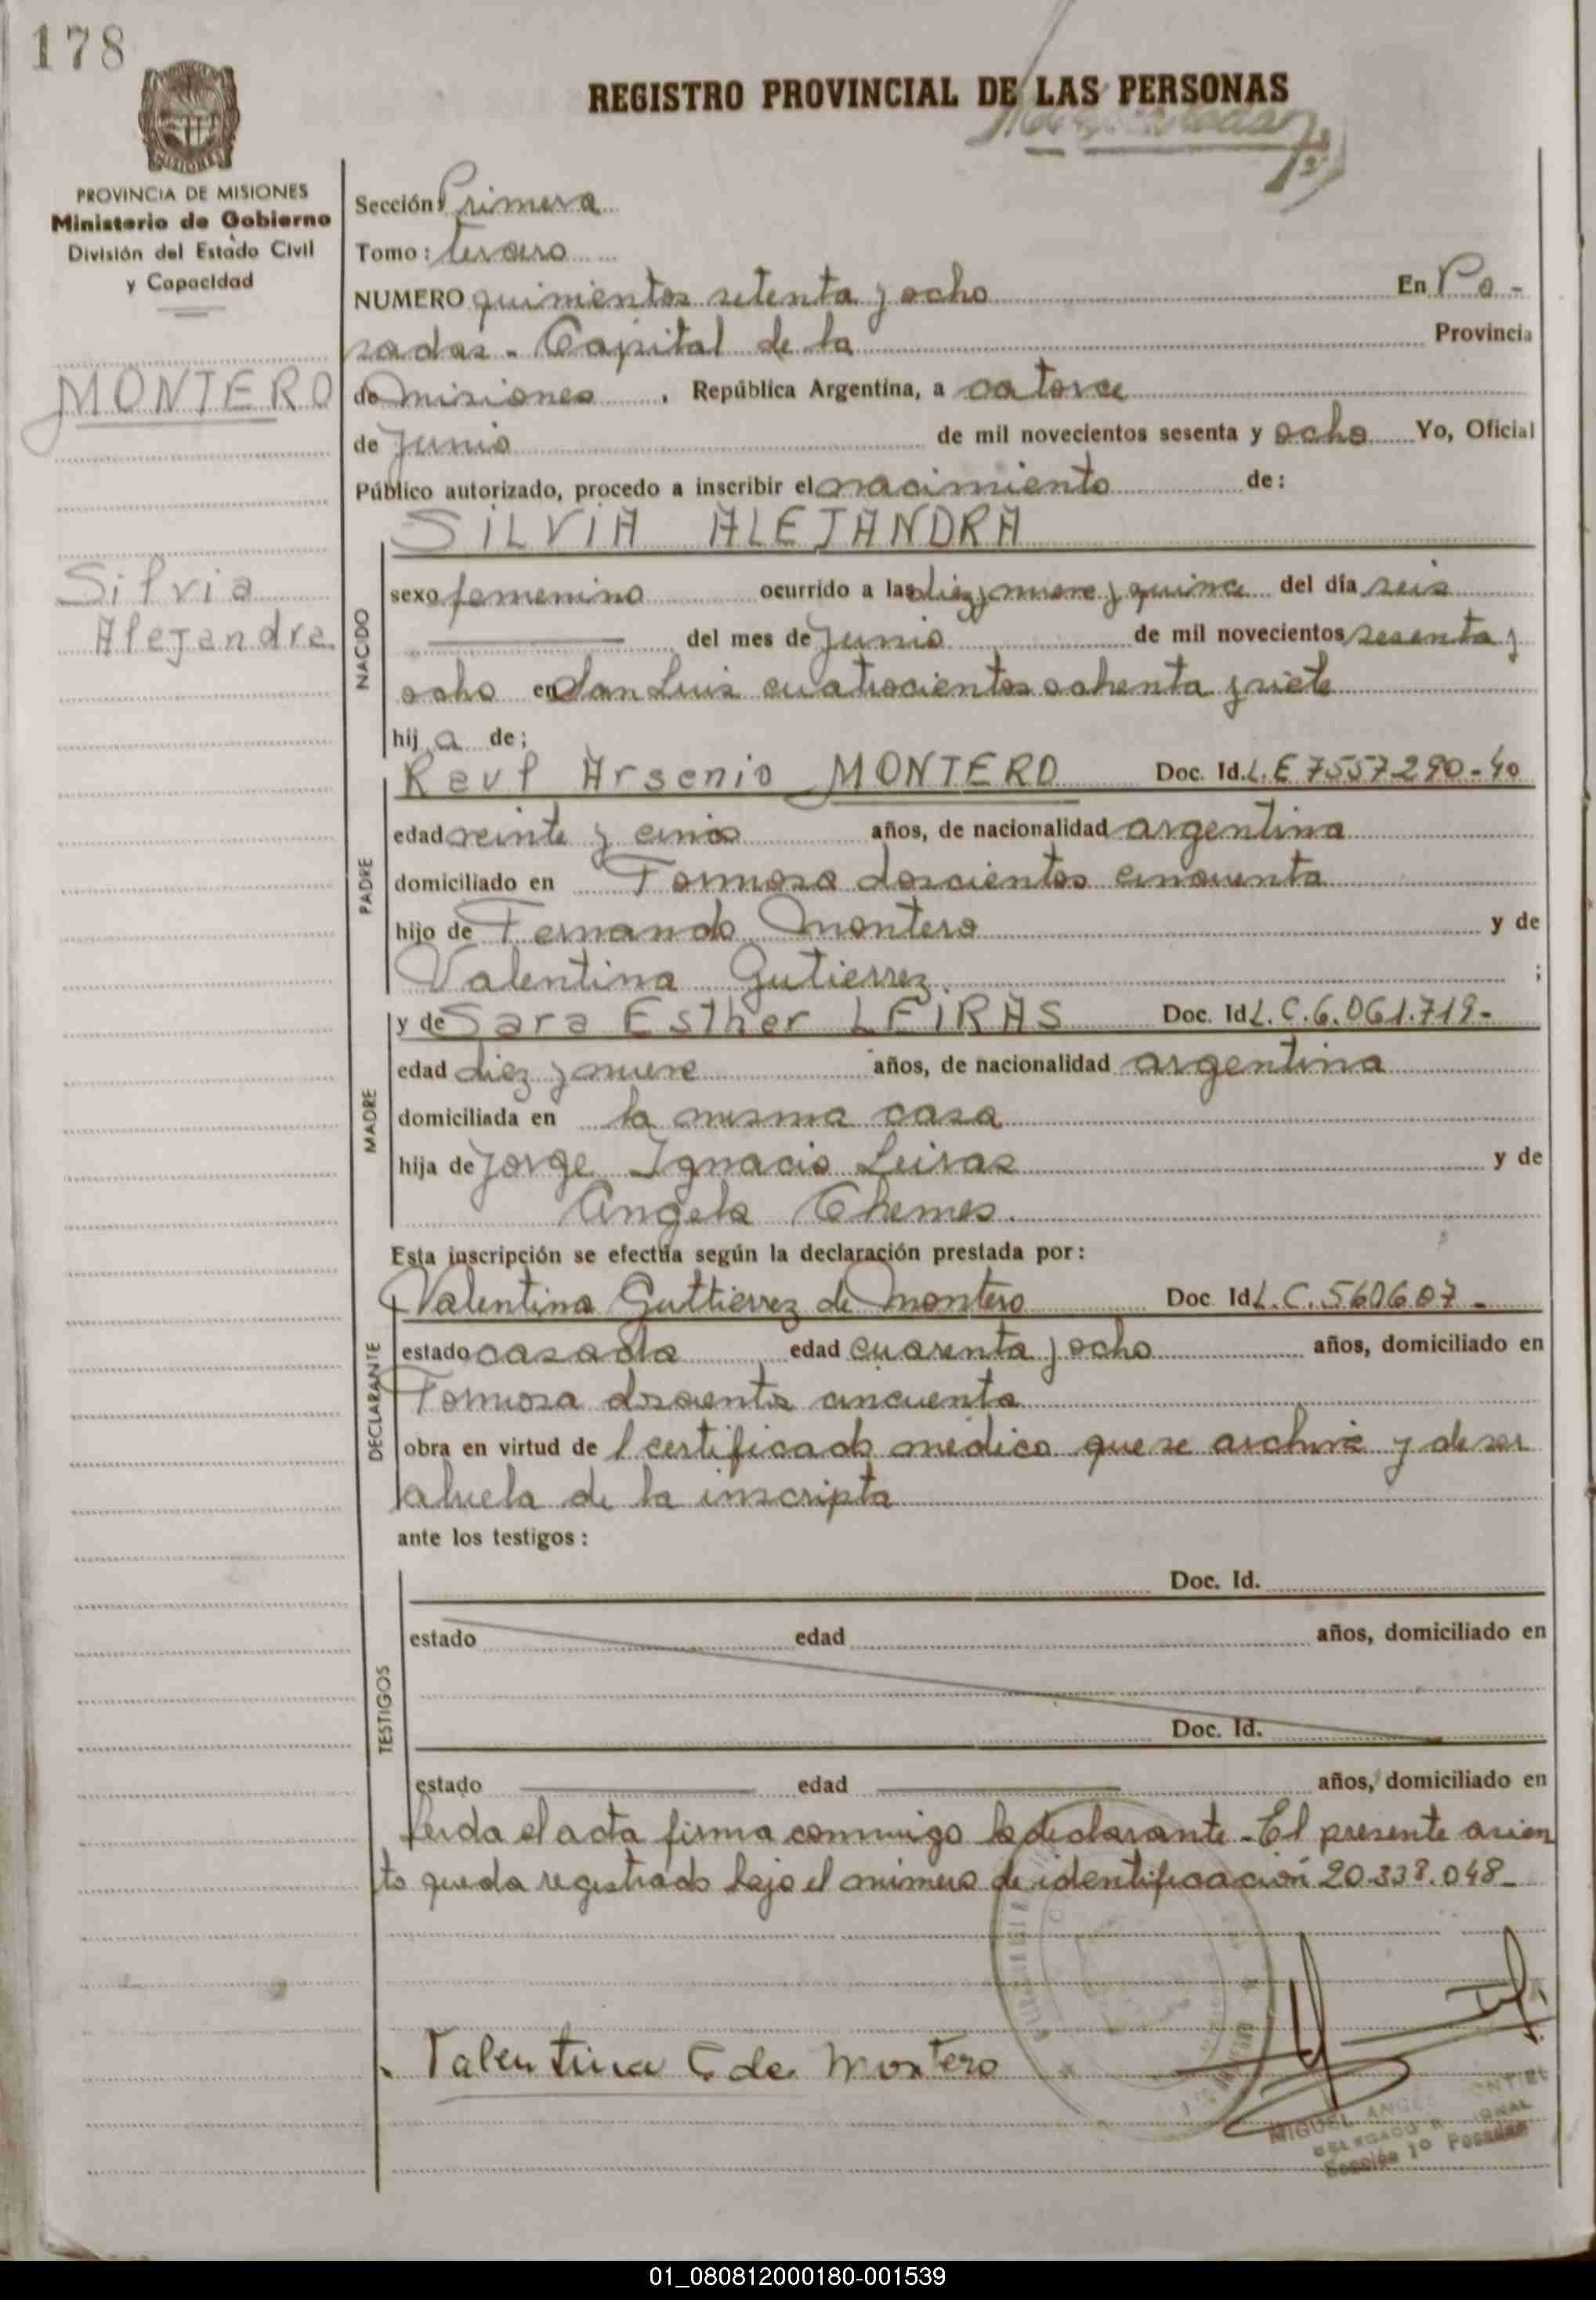 178
REGISTRO PROVINCIAL DE LAS PERSONAS
PROVINCIA DE MISIONES
Ministerio de Gobierno
División del Estado Civil
y Capacidad
MONTERO
Silvia
Alejandra
Sección Primera
Tomo: tercero
NUMERO quinientos setenta y ocho En Po-
sadas - Capital de la Provincia
de Misiones, República Argentina, a catorce
de Junio de mil novecientos sesenta y ocho Yo, Oficial
Público autorizado, procedo a inscribir el nacimiento de:
SILVIA ALEJANDRA
NACIDO
sexo femenino ocurrido a las diez y nueve y quince del día seis
del mes de Junio de mil novecientos sesenta y
ocho en San Luis cuatrocientos ochenta y siete
hij a de;
PADRE
Raul Arsenio MONTERO Doc. Id. L.E 7557290-40
edad veinte y cinco años, de nacionalidad argentina
domiciliado en Formosa doscientos cincuenta
hijo de Fernando Montero y de
Valentina Gutierrez. ;
MADRE
y de Sara Esther LEIRAS Doc. Id L.C.6.061.719-
edad diez y nueve años, de nacionalidad argentina
domiciliada en la misma casa
hija de Jorge Ignacio Leiras y de
Angela Chemes.
Esta inscripción se efectúa según la declaración prestada por:
DECLARANTE
Valentina Guttierrez de Montero Doc Id L.C.560607-
estado casada edad cuarenta y ocho años, domiciliado en
Formosa doscientos cincuenta
obra en virtud de l certificado medico que se archiva y de ser
abuela de la inscripta
ante los testigos:
TESTIGOS
Doc. Id.
estado edad años, domiciliado en
Doc. Id.
estado edad años, domiciliado en
Leida el acta firma conmigo la declarante - El presente asien
to queda registrado bajo el número de identificación 20.338.048-
Valentina G de Montero
MIGUEL ANGEL
DELEGADO
Sección 1º Posadas
01_080812000180-001539